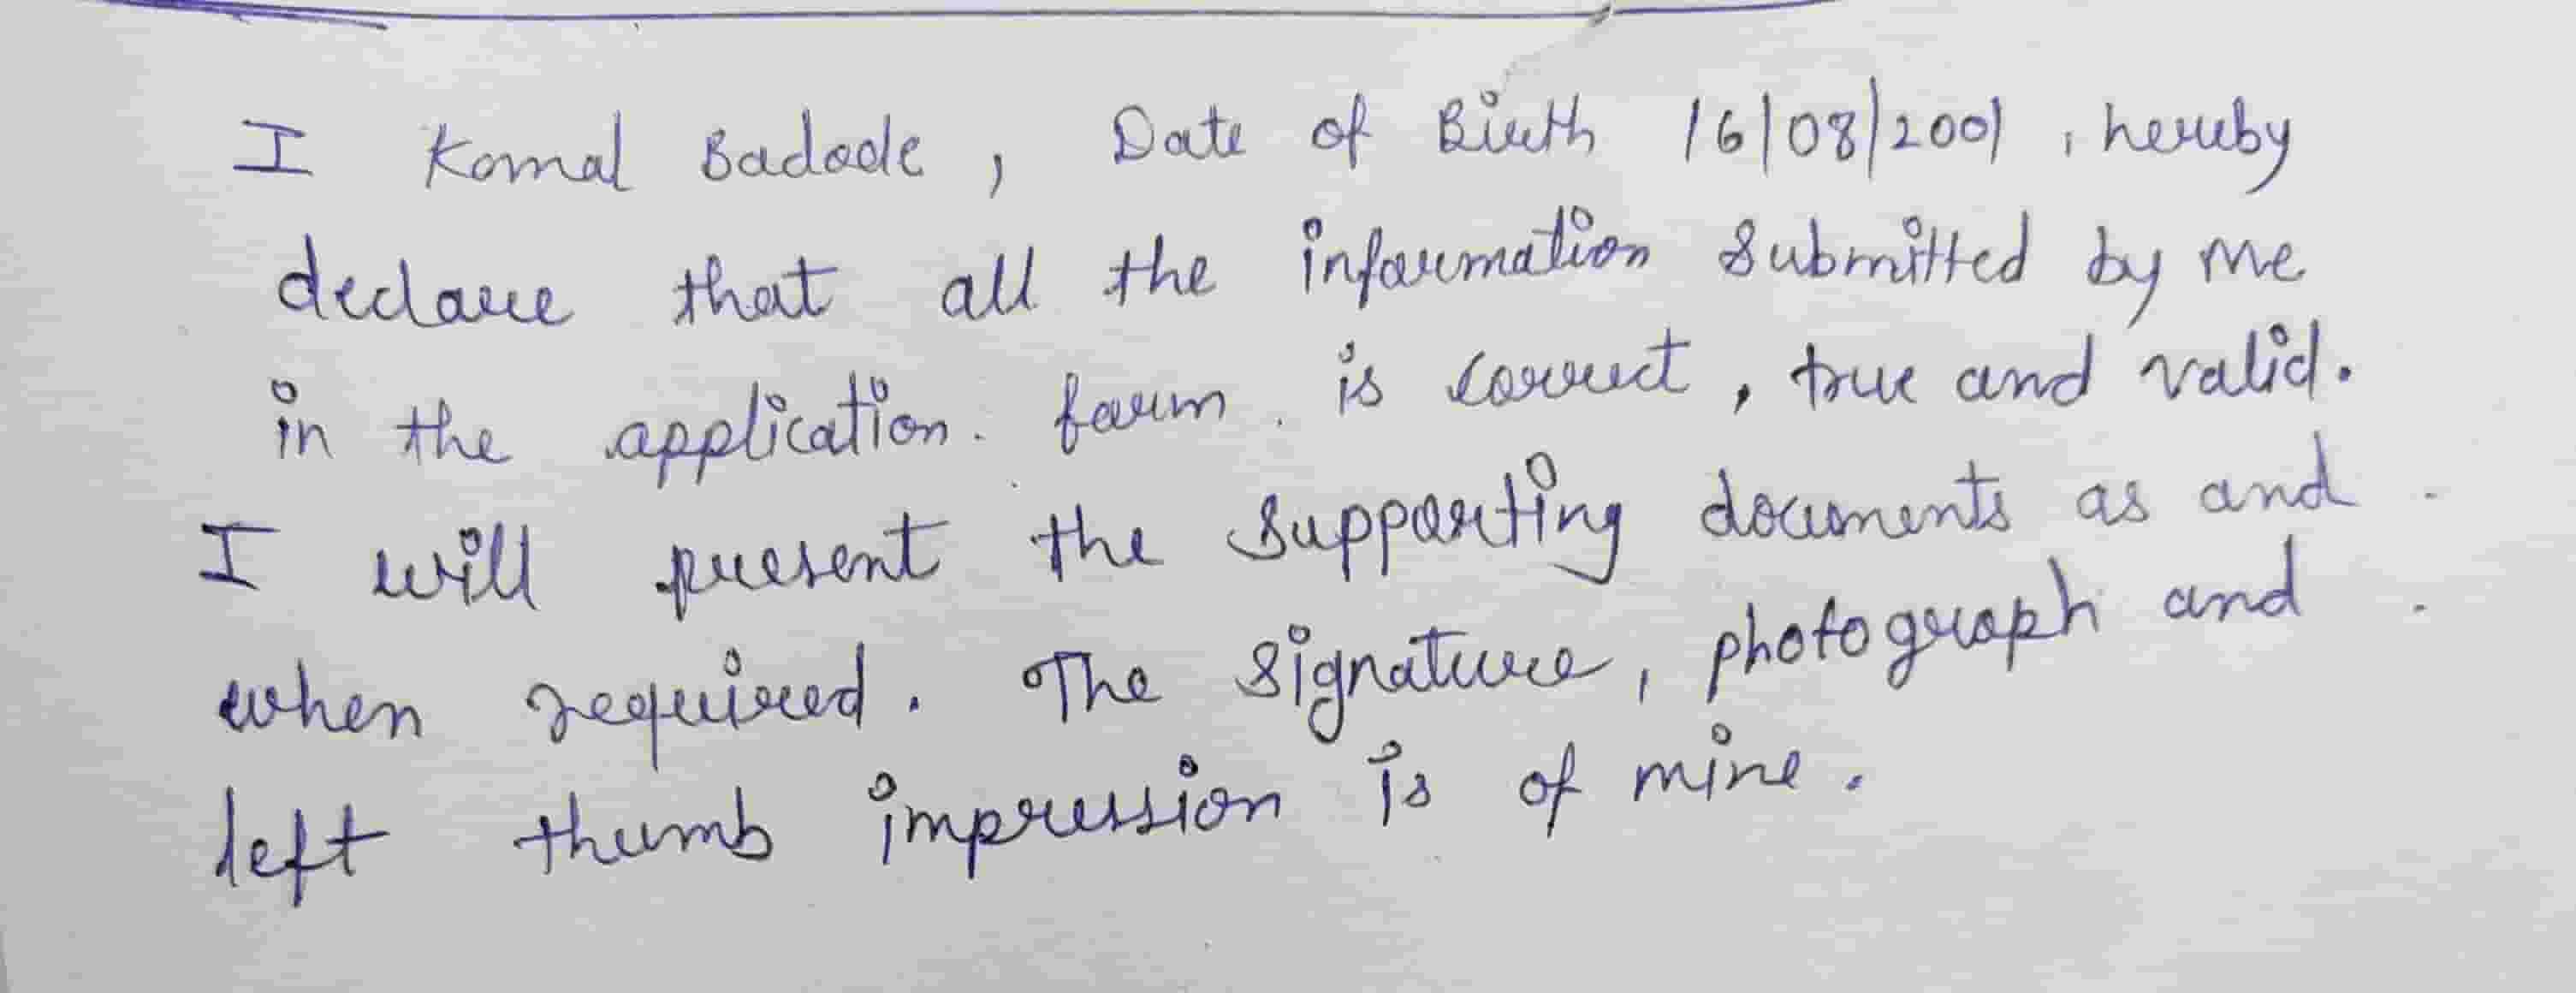 I Komal Badode, Date of Birth 16/08/2001, hereby
declare that all the information submitted by me
in the application form is correct, true and valid.
I will present the supporting documents as and
when required. The signature, photograph and
left thumb impression is of mine.